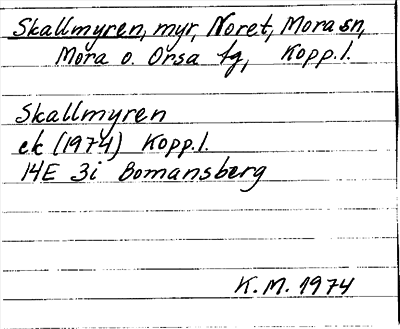 Skallmyren, myr, Noret, Mora sn,
Mora o. Orsa tg, Kopp.l.
Skallmyren
ek (1974) Kopp.l.
14E 3i Bomansberg
K.M. 1974